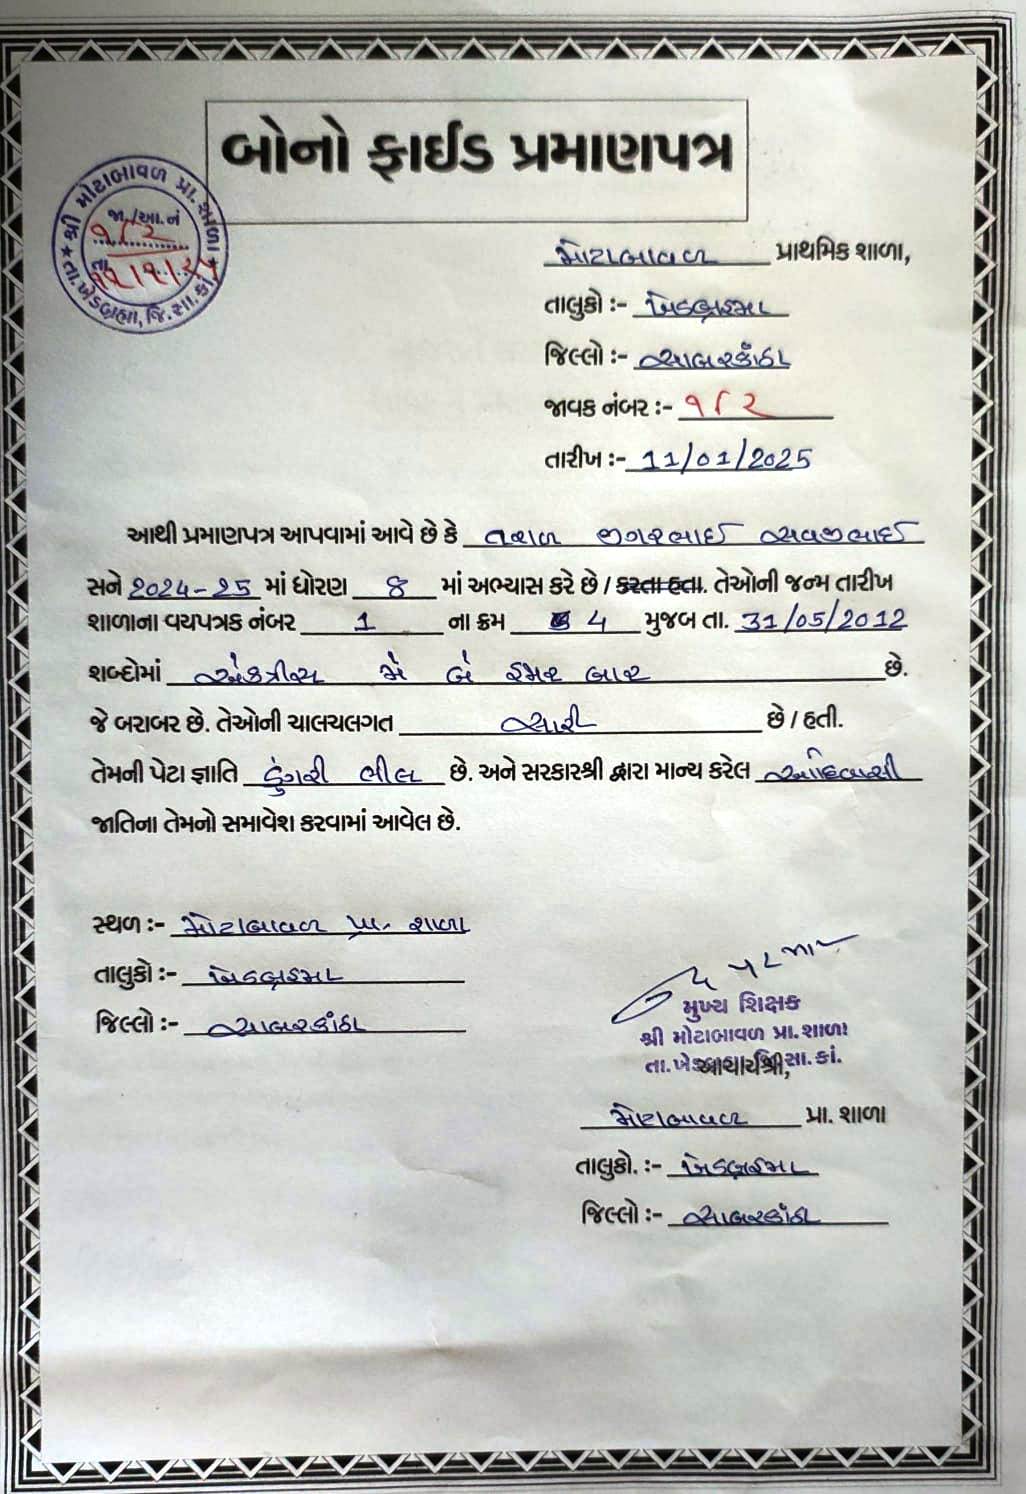 બોનો ફાઈડ પ્રમાણપત્ર
શ્રી મોટાબાવળ પ્રા. શાળા
જા./આ.નં
૧૮૨
તા.
તા.ખેડબ્રહ્મા, જિ.સા.કાં.
મોટાબાવળ પ્રાથમિક શાળા,
તાલુકો :- ખેડબ્રહ્મા
જિલ્લો :- સાબરકાંઠા
જાવક નંબર :- ૧૮૨
તારીખ :- 11/01/2025
આથી પ્રમાણપત્ર આપવામાં આવે છે કે તરાળ જીગરભાઈ સવજીભાઈ
સને 2024-25 માં ધોરણ 8 માં અભ્યાસ કરે છે / કરતા હતા. તેઓની જન્મ તારીખ
શાળાના વયપત્રક નંબર 1 ના ક્રમ 4 મુજબ તા. 31/05/2012
શબ્દોમાં એકત્રીસ મે બે હજાર બાર છે.
જે બરાબર છે. તેઓની ચાલચલગત સારી છે / હતી.
તેમની પેટા જ્ઞાતિ ડુંગરી ભીલ છે. અને સરકારશ્રી દ્વારા માન્ય કરેલ આદિવાસી
જાતિના તેમનો સમાવેશ કરવામાં આવેલ છે.
સ્થળ :- મોટાબાવળ પ્રા. શાળા
તાલુકો :- ખેડબ્રહ્મા
જિલ્લો :- સાબરકાંઠા
મુખ્ય શિક્ષક
શ્રી મોટાબાવળ પ્રા.શાળા
તા.ખેડબ્રહ્મા જિ.સા.કાં.
આચાર્યશ્રી,
મોટાબાવળ પ્રા. શાળા
તાલુકો. :- ખેડબ્રહ્મા
જિલ્લો :- સાબરકાંઠા